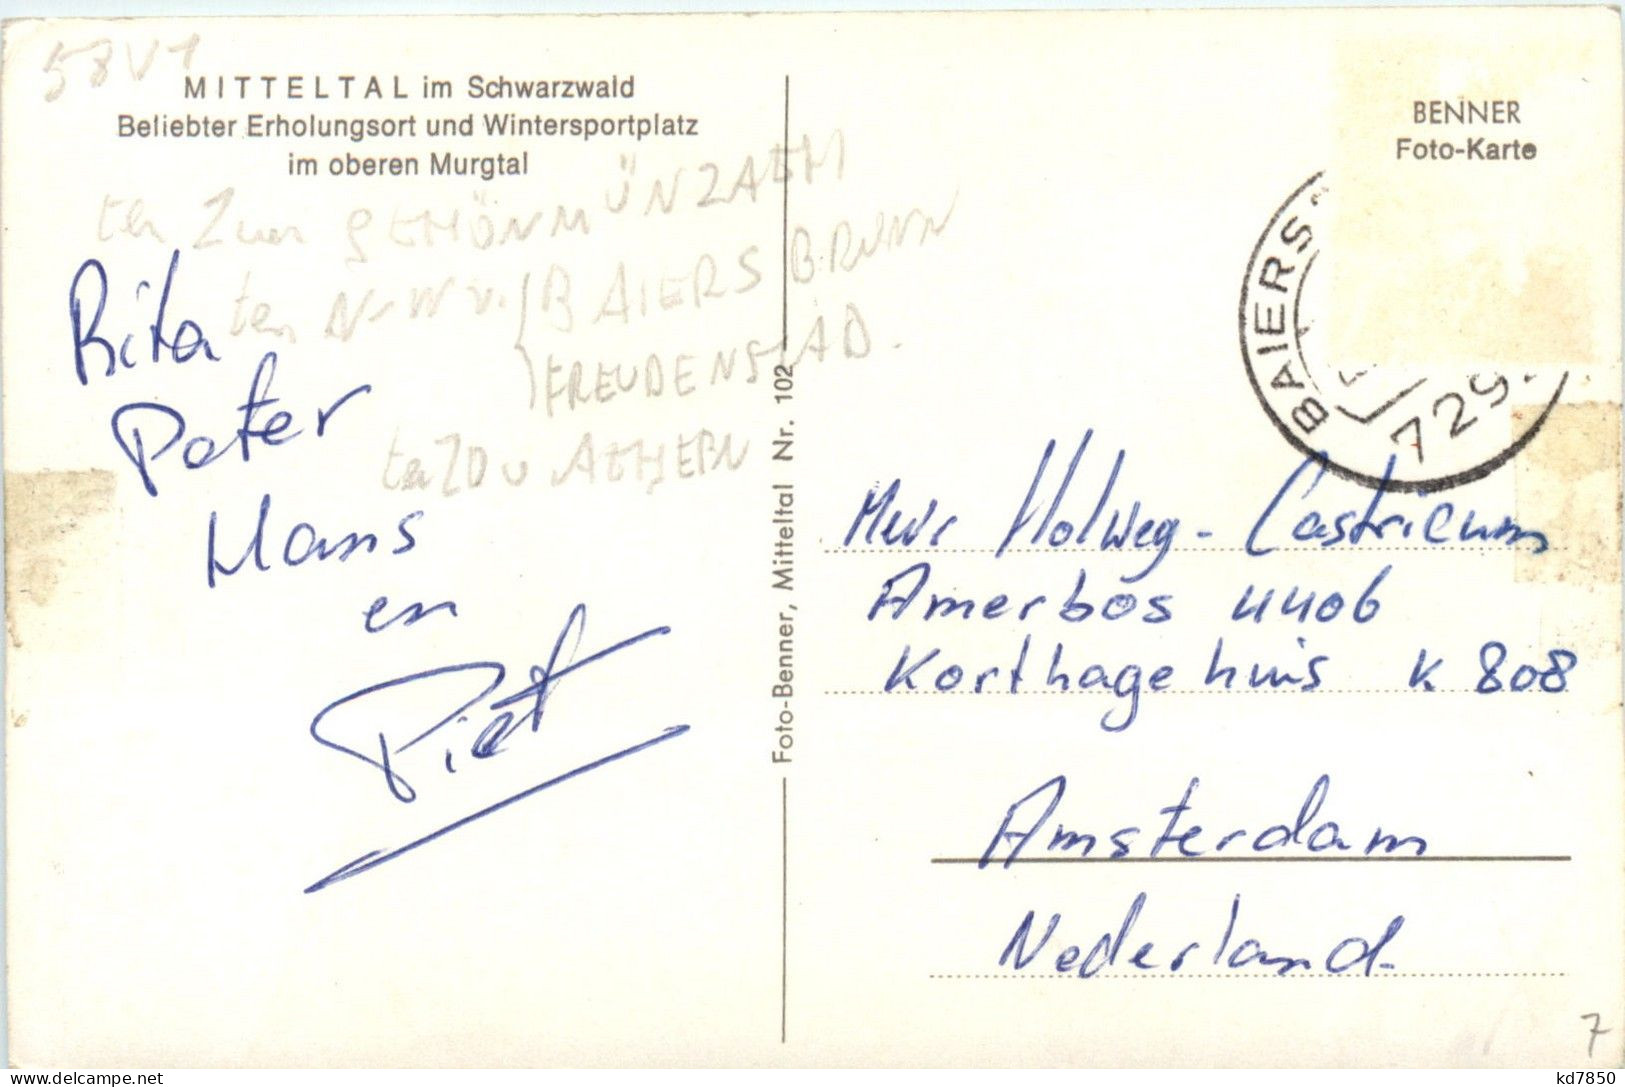 58V1
MITTELTAL im Schwarzwald
Beliebter Erholungsort und Wintersportplatz
im oberen Murgtal
ten Zuu
ten N-W v. BAIERSBRUNN
FREUDENSTAD.
ten ZO v ACHERN
Rita
Peter
Hans
en
Piet
Foto-Benner, Mitteltal Nr. 102
BENNER
Foto-Karte
BAIERS
729
Mevr Holweg - Castricum
Amerbos 4406
Korthagehuis K 808
Amsterdam
Nederland
7
kd7850